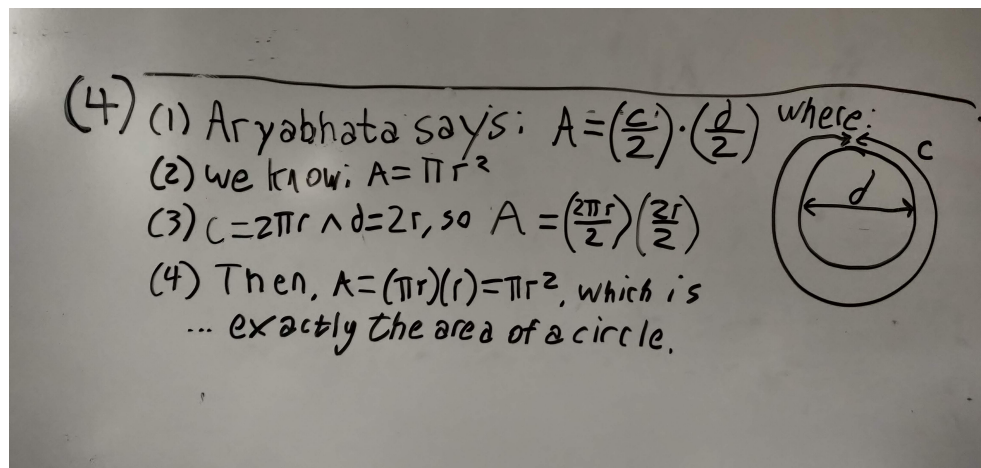 (4) (1) Aryabhata says: A=(c/2)·(d/2) where:
c
d
(2) we know: A=πr²
(3) c=2πr ∧ d=2r, so A=(2πr/2)(2r/2)
(4) Then, A=(πr)(r)=πr², which is
... exactly the area of a circle.